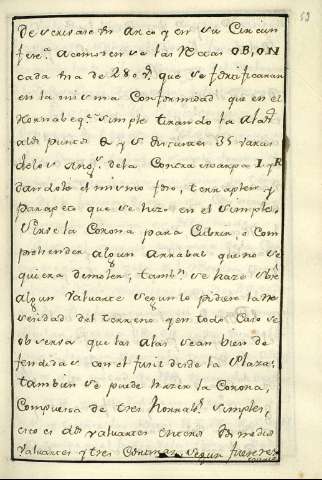 53
descrivase un Arco y en su Circun
fer.ª acomodense las Rectas OB, ON
cada una de 280 v.ˢ que se fortificaran
en la misma Conformidad que en el
Hornabeq.ᵉ simple tirando la Alas
alos puntos & y S distantes 35 varas
delos Ang.ˢ dela Contraescarpa I y R
dandole el mismo foso, terraplen y
Parapeto que se hizo en el simple,
Sirve la Corona para Cubrir, o Com
prehender algun Arrabal que no se
quiera demoler, tamb.ⁿ se haze sobre
algun Valuarte segun lo pidiere la Ne
sesidad del terreno y en todo Caso se
observa que las Alas sean bien de
fendidas con el fusil desde la Plaza,
tambien se puede hazer la Corona,
Compuesta de tres hornab.ˢ simples,
esto es dos valuartes enteros dos medios
valuartes y tres Cortinas, segun fuere ne